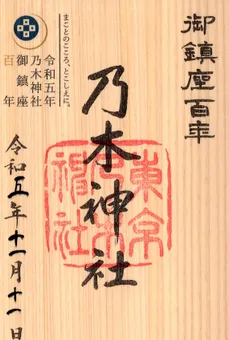 御鎮座百年
まことのこころ、とこしえに。
令和五年
乃木神社
御鎮座
百年
乃木神社
東京乃木神社
令和五年十一月十一日